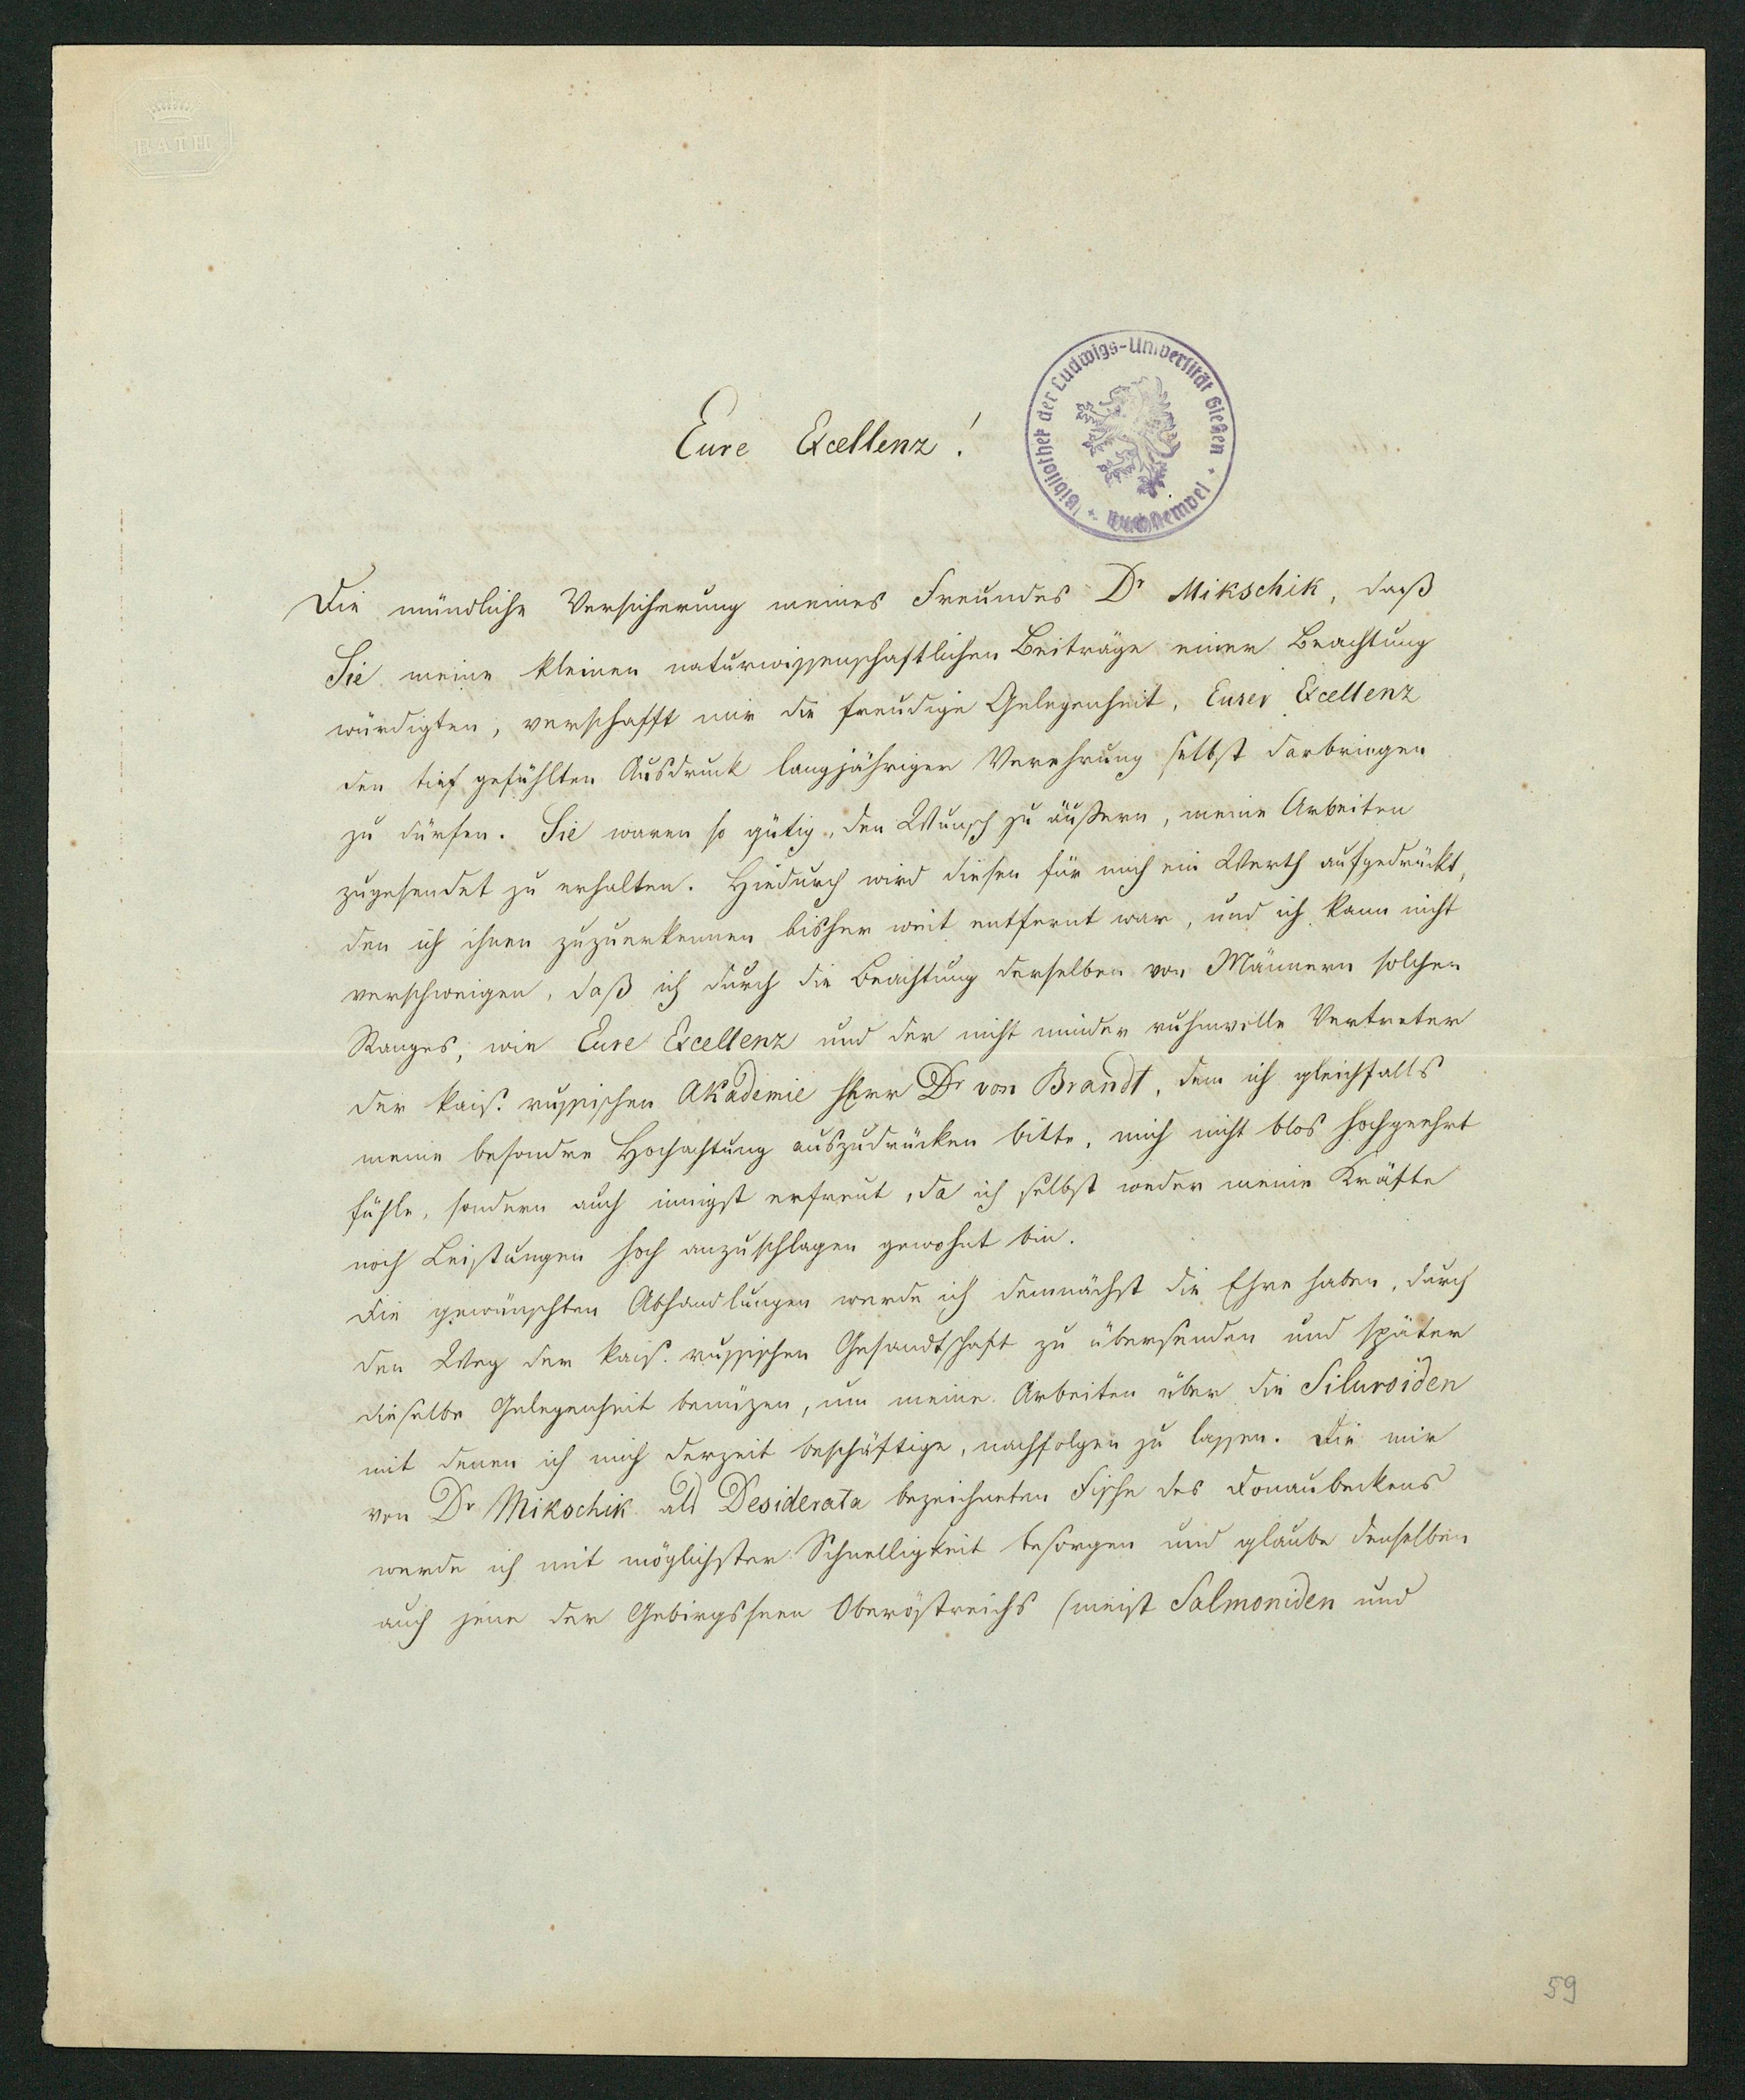 BATH
Eure Excellenz!
Bibliothek der Ludwigs-Universität Gießen
Buchstempel
Die mündliche Versicherung meines Freundes Dr Mikschik, daß
Sie meine kleinen naturwissenschaftlichen Beiträge einer Beachtung
würdigten, verschafft mir die freudige Gelegenheit, Eurer Excellenz
den tief gefühlten Ausdruck langjähriger Verehrung selbst darbringen
zu dürfen. Sie waren so gütig, den Wunsch zu äußern, meine Arbeiten
zugesendet zu erhalten. Hiedurch wird diesen für mich ein Werth aufgedrückt,
den ich ihnen zuzuerkennen bisher weit entfernt war, und ich kann nicht
verschweigen, daß ich durch die Beachtung derselben von Männern solchen
Ranges, wie Eure Excellenz und der nicht minder ruhmvolle Vertreter
der kais. russischen Akademie Herr Dr von Brandt, dem ich gleichfalls
meine besondre Hochachtung auszudrücken bitte, mich nicht blos hochgeehrt
fühle, sondern auch innigst erfreut, da ich selbst weder meine Kräfte
noch Leistungen hoch anzuschlagen gewohnt bin.
Die gewünschten Abhandlungen werde ich demnächst die Ehre haben, durch
den Weg der kais. russischen Gesandtschaft zu übersenden und später
dieselbe Gelegenheit benüzen, um meine Arbeiten über die Siluroiden
mit denen ich mich derzeit beschäftige, nachfolgen zu lassen. Die mir
von Dr Mikschik als Desiderata bezeichneten Fische des Donaubeckens
werde ich mit möglichster Schnelligkeit besorgen und glaube denselben
auch jene der Gebirgsseen Oberöstreichs (meist Salmoniden und
59